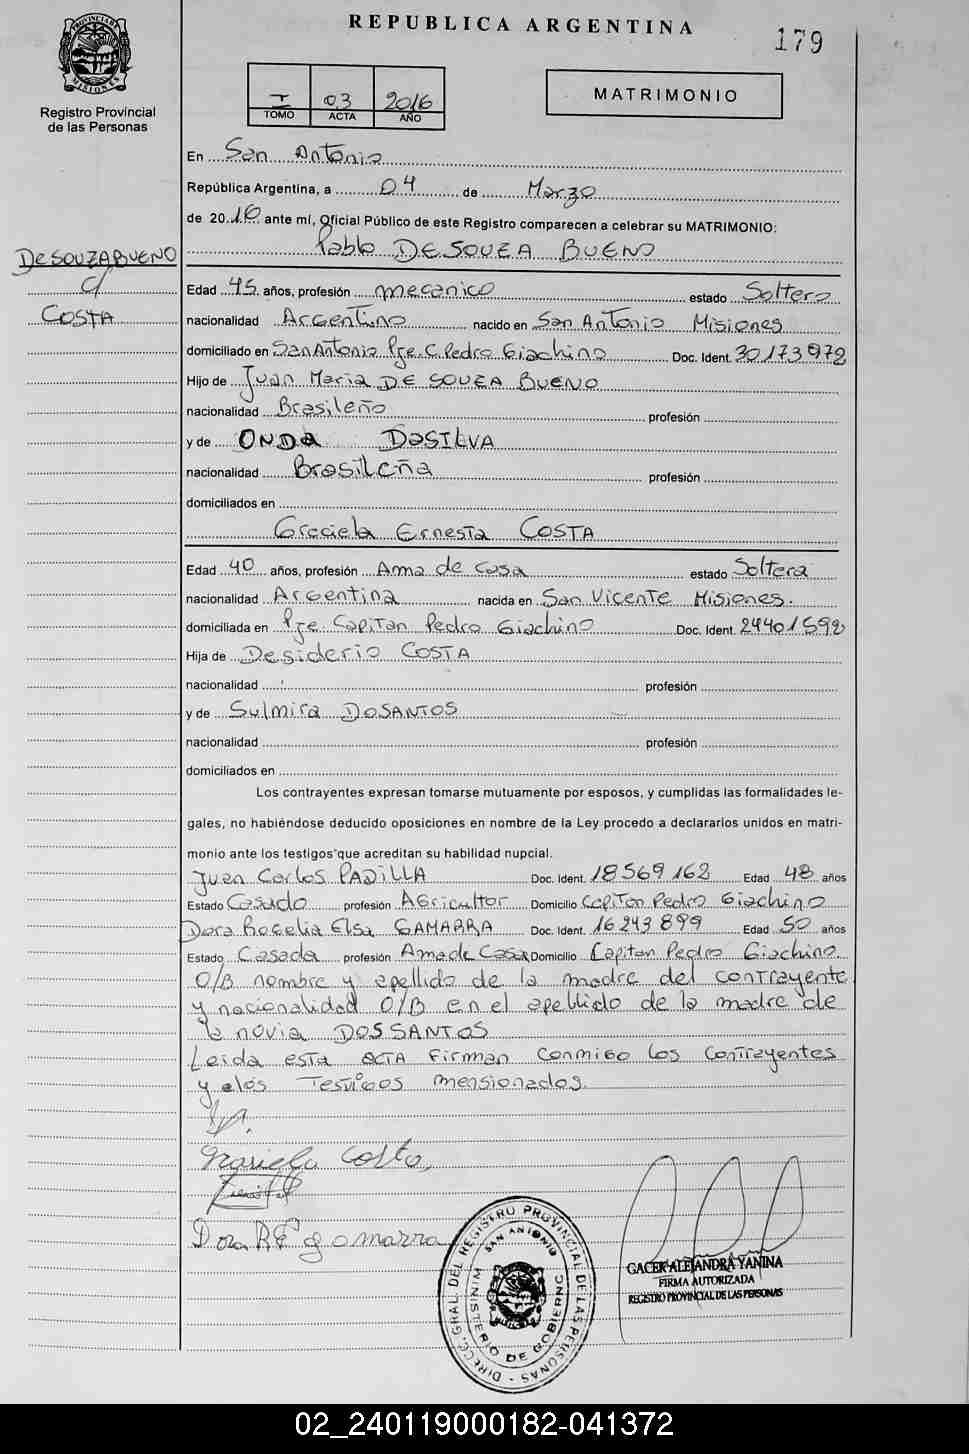 REPUBLICA ARGENTINA
179
PROVINCIA DE MISIONES
Registro Provincial
de las Personas
I 03 2016
TOMO ACTA AÑO
MATRIMONIO
En San Antonio
República Argentina, a 04 de Marzo
de 2016 ante mí, Oficial Público de este Registro comparecen a celebrar su MATRIMONIO:
Pablo DE SOUZA BUENO
DE SOUZA BUENO
c/
COSTA
Edad 45 años, profesión mecanico estado Soltero
nacionalidad Argentino nacido en San Antonio Misiones
domiciliado en San Antonio Pje. C. Pedro Giachino Doc. Ident. 30173972
Hijo de Juan Maria DE SOUZA BUENO
nacionalidad Brasileño profesión
y de ONDA DASILVA
nacionalidad Brasileña profesión
domiciliados en
Graciela Ernesta COSTA
Edad 40 años, profesión Ama de Casa estado Soltera
nacionalidad Argentina nacida en San Vicente Misiones.
domiciliada en Pje Capitan Pedro Giachino Doc. Ident. 24401592
Hija de Desiderio COSTA
nacionalidad profesión
y de Sulmira DOSANTOS
nacionalidad profesión
domiciliados en
Los contrayentes expresan tomarse mutuamente por esposos, y cumplidas las formalidades le-
gales, no habiéndose deducido oposiciones en nombre de la Ley procedo a declararlos unidos en matri-
monio ante los testigos que acreditan su habilidad nupcial.
Juan Carlos PADILLA Doc. Ident. 18569162 Edad 48 años
Estado Casado profesión Agricultor Domicilio Capitan Pedro Giachino
Dora Rogelia Elsa GAMARRA Doc. Ident. 16243899 Edad 50 años
Estado Casada profesión Ama de Casa Domicilio Capitan Pedro Giachino
O/B nombre y apellido de la madre del contrayente
y nacionalidad O/B en el apellido de la madre de
la novia DOSSANTOS
Leida esta ACTA Firman conmigo los contrayentes
y los Testigos mensionados.
Graciela Costa
Dora R E gamarra
DIRECC. GRAL. DEL REGISTRO PROVINCIAL DE LAS PERSONAS
SAN ANTONIO
MINISTERIO DE GOBIERNO
GACEK ALEJANDRA YANINA
FIRMA AUTORIZADA
REGISTRO PROVINCIAL DE LAS PERSONAS
02_240119000182-041372